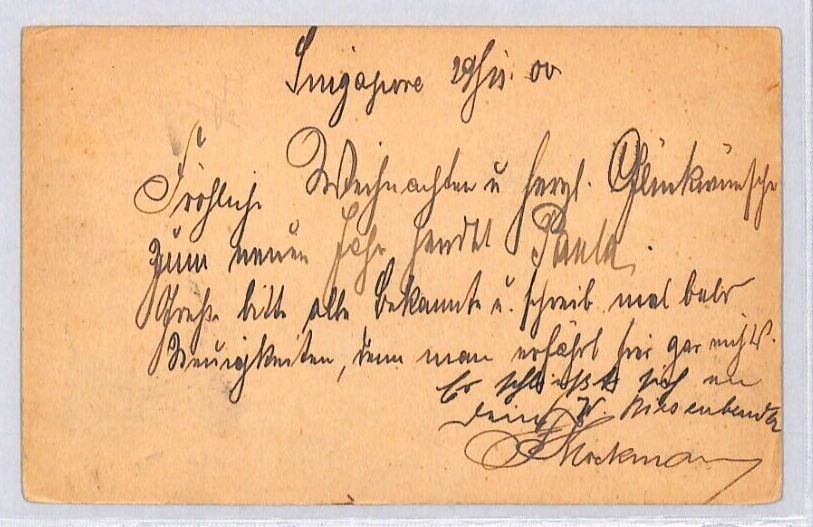 Singapore 29/11. 00
Fröhliche Weihnachten u herzl. Glückwünsche
zum neuen Jahr sendet Paula.
Grüße bitte alle Bekannte u. schreib mal bald
Neuigkeiten, denn man erfährt hier gar nichts.
Es schließt sich an
dein W.